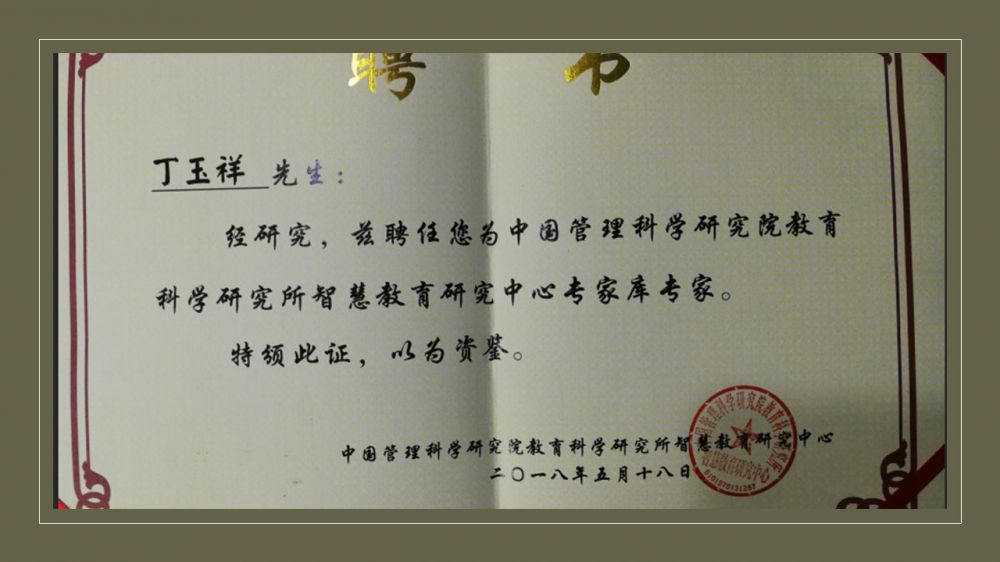 聘 书
丁玉祥 先生：
经研究，兹聘任您为中国管理科学研究院教育
科学研究所智慧教育研究中心专家库专家。
特颁此证，以为资鉴。
中国管理科学研究院教育科学研究所智慧教育研究中心
二〇一八年五月十八日